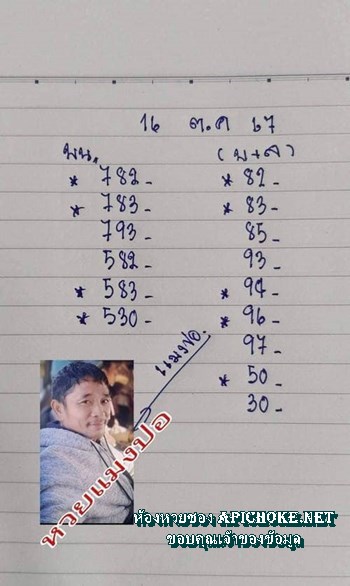 16 ต.ค 67
บน.
* 782-
* 783-
793-
582-
* 583-
* 530-
(บ+ล)
* 82-
* 83-
85-
93-
* 94-
* 96-
97-
* 50-
30-
แมงปอ.
หวยแมงปอ
ห้องหวยซอง APICHOKE.NET
ขอบคุณเจ้าของข้อมูล